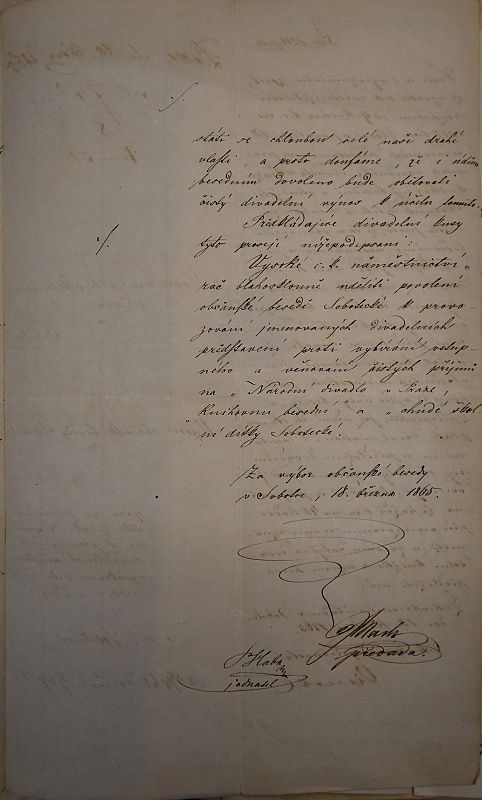 ./.
státi se chloubou celé naší drahé
vlasti, a proto doufáme, že i údům
besedním dovoleno bude obětovati
čistý divadelní výnos k účelu tomuto.
Předkládajíce divadelní kusy
tyto prosejí nížepodepsaní:
./.
Vysoké c. k. náměstnictví
rač blahosklonně uděliti povolení
občanské besedě Sobotecké k provo-
zování jmenovaných divadelních
představení proti vybírání vstup-
ného a věnování čistých příjmů
na „Národní divadlo v Praze“,
„Knihovnu besední“ a „chudé škol-
ní dítky Sobotecké.
Za výbor občanské besedy
v Sobotce, 18. března 1865.
předseda.
jednatel